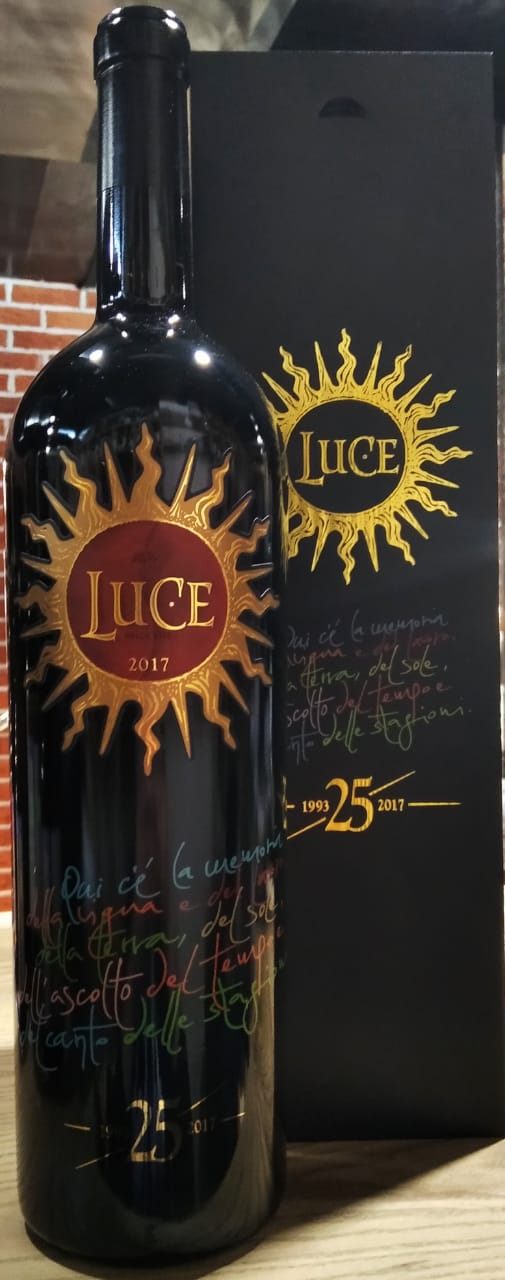 LUCE
2017
Qui c'è la memoria
della vigna e del
della terra, del sole,
dell'ascolto del tempo e
del canto delle stagioni
25 2017
LUCE
Qui c'è la memoria
e del
terra, del sole,
del tempo e
delle stagioni.
1993 25 2017